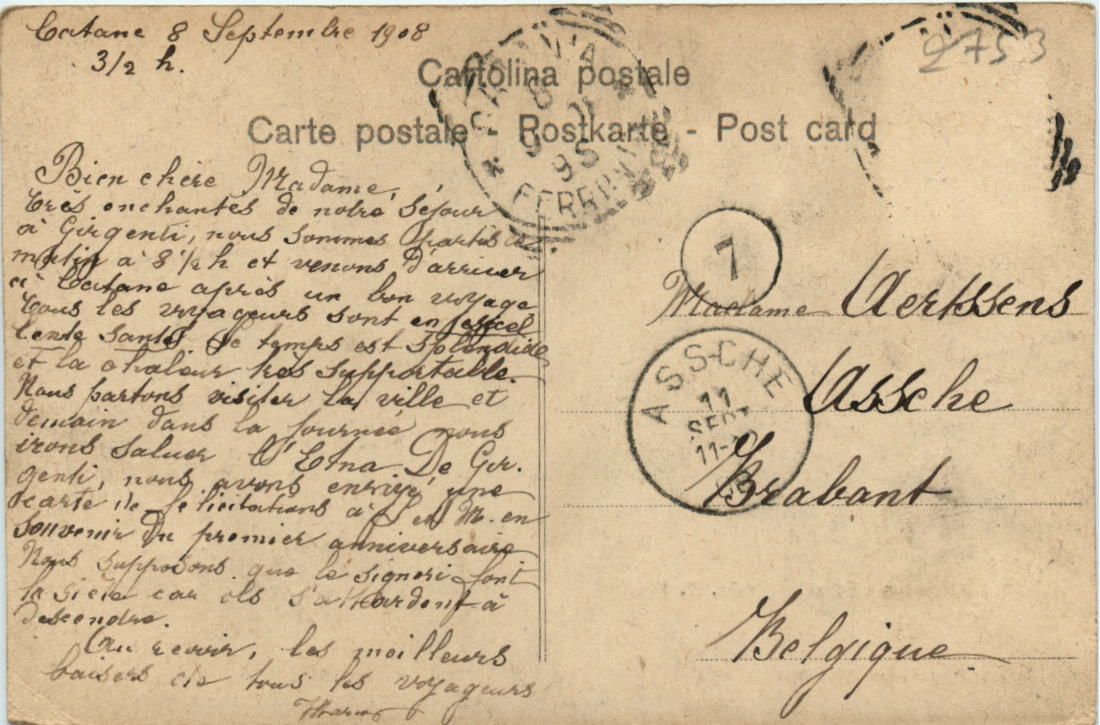 Catane 8 Septembre 1908
3 1/2 h.
2753
Cartolina postale
Carte postale - Postkarte - Post card
Bien chère Madame,
Très enchantés de notre séjour
à Girgenti, nous sommes partis ce
matin à 8 1/2 h et venons d'arriver
à Catane après un bon voyage
Tous les voyageurs sont en excel
lente santé Le temps est splendide
et la chaleur très supportable.
Nous partons visiter la ville et
demain dans la journée nous
irons saluer l'Etna. De Gir-
genti, nous avons envoyé une
carte de félicitations à en M. en
souvenir du premier anniversaire
Nous supposons que le signori font
la sièle car ils s'attardent à
descendre.
Au revoir, les meilleurs
baisers de tous les voyageurs
FERROVIA
7
Madame Aertssens
ASSCHE
11
SEPT
11-
Assche
Brabant
Belgique